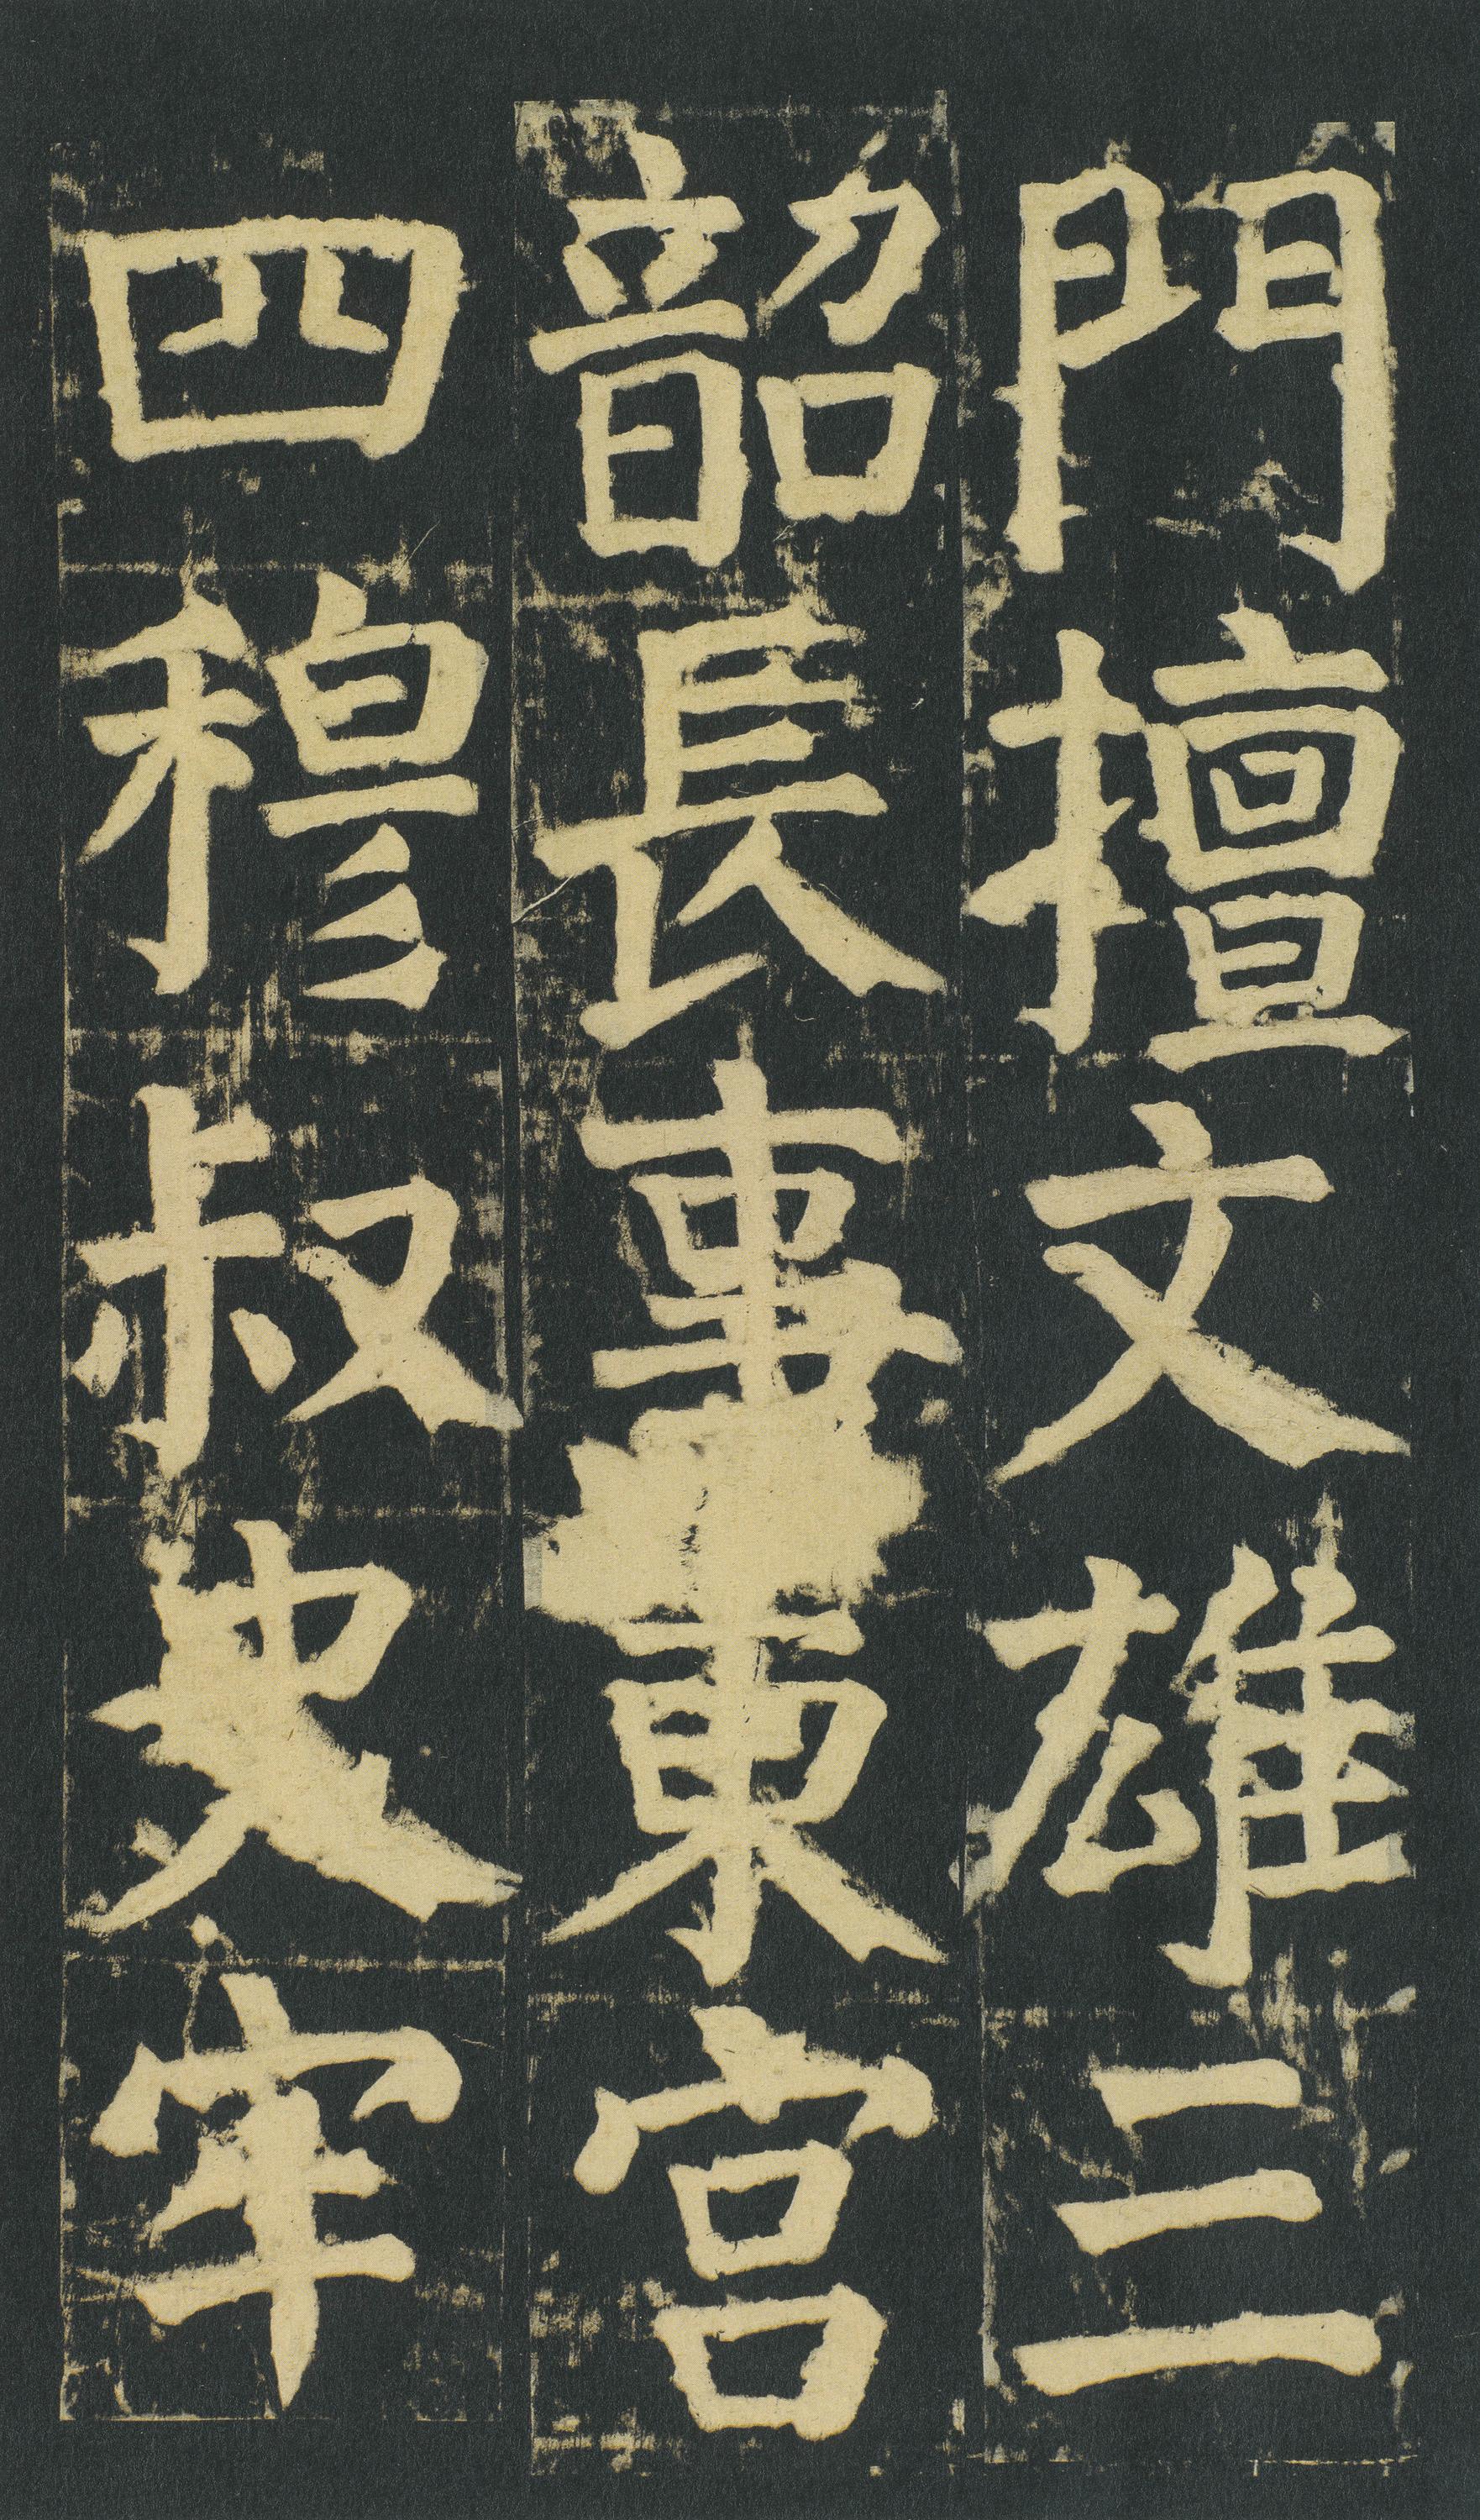 門擅文雄三
韶長事東宮
四穆叔史宰